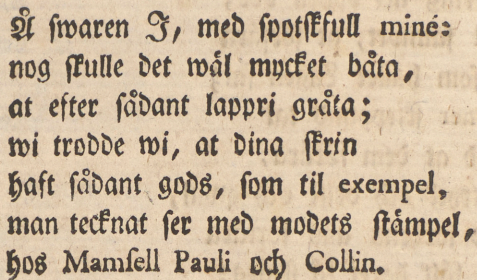 Å swaren I, med spotskfull miné:
nog skulle det wäl mycket båta,
at efter sådant lappri gråta;
wi trodde wi, at dina skrin
haft sådant gods, som til exempel,
man tecknat ser med modets stämpel,
hos Mamsell Pauli och Collin.